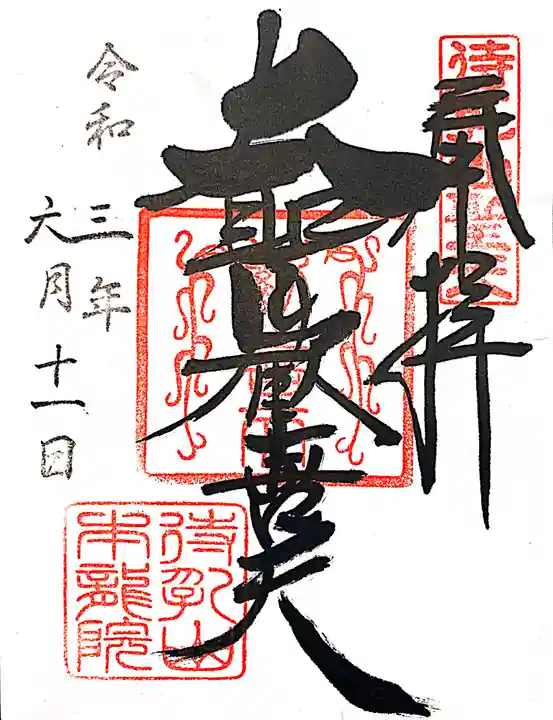 奉拝
大聖歓喜天
令和三年
六月十一日
待乳山
本龍院